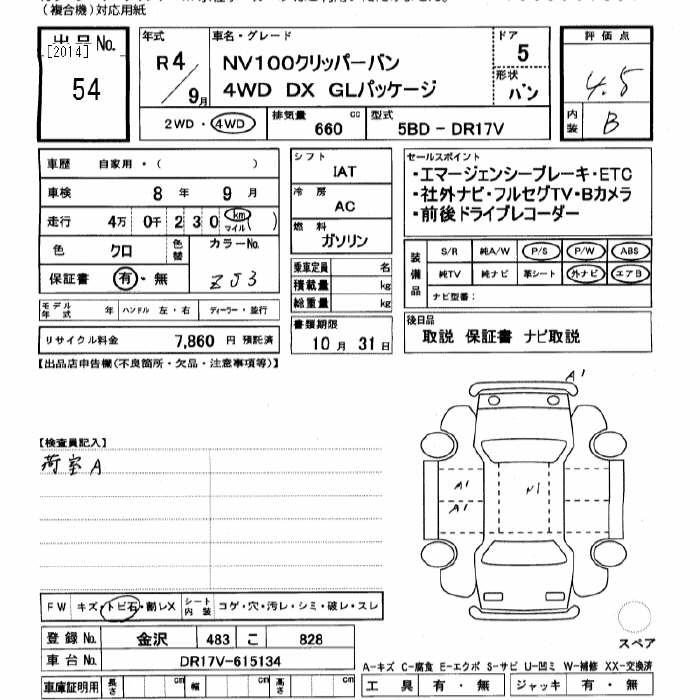 (複合機)対応用紙
出品No.
[2014]
54
年式
R4/9月
車名・グレード
NV100クリッパーバン
4WD DX GLパッケージ
ドア
5
形状
バン
評価点
4.5
内装
B
2WD・4WD
排気量 660 cc
型式 5BD-DR17V
車歴 自家用・( )
車検 8年 9月
走行 4万 0千 2 3 0 km マイル ( )
色 クロ 色替 カラーNo.
ZJ3
保証書 有・無
モデル年式 年 ハンドル 左・右 ディーラー・並行
リサイクル料金 7,860 円 預託済
シフト
IAT
冷房
AC
燃料
ガソリン
乗車定員 名
積載量 kg
総重量 kg
書類期限
10月 31日
セールスポイント
・エマージェンシーブレーキ・ETC
・社外ナビ・フルセグTV・Bカメラ
・前後ドライブレコーダー
装備品
S/R 純A/W P/S P/W ABS
純TV 純ナビ 革シート 外ナビ エアB
ナビ型番:
後日品
取説 保証書 ナビ取説
【出品店申告欄(不良箇所・欠品・注意事項等)】
【検査員記入】
荷室A
A1
A1
A1
FW キズ・トビ石・割レX シート内装 コゲ・穴・汚レ・シミ・破レ・スレ
登録No. 金沢 483 こ 828
車台No. DR17V-615134
車庫証明用 長さ cm 幅 cm 高さ cm
スペア
A-キズ C-腐食 E-エクボ S-サビ U-凹ミ W-補修 XX-交換済
工具 有・無 ジャッキ 有・無